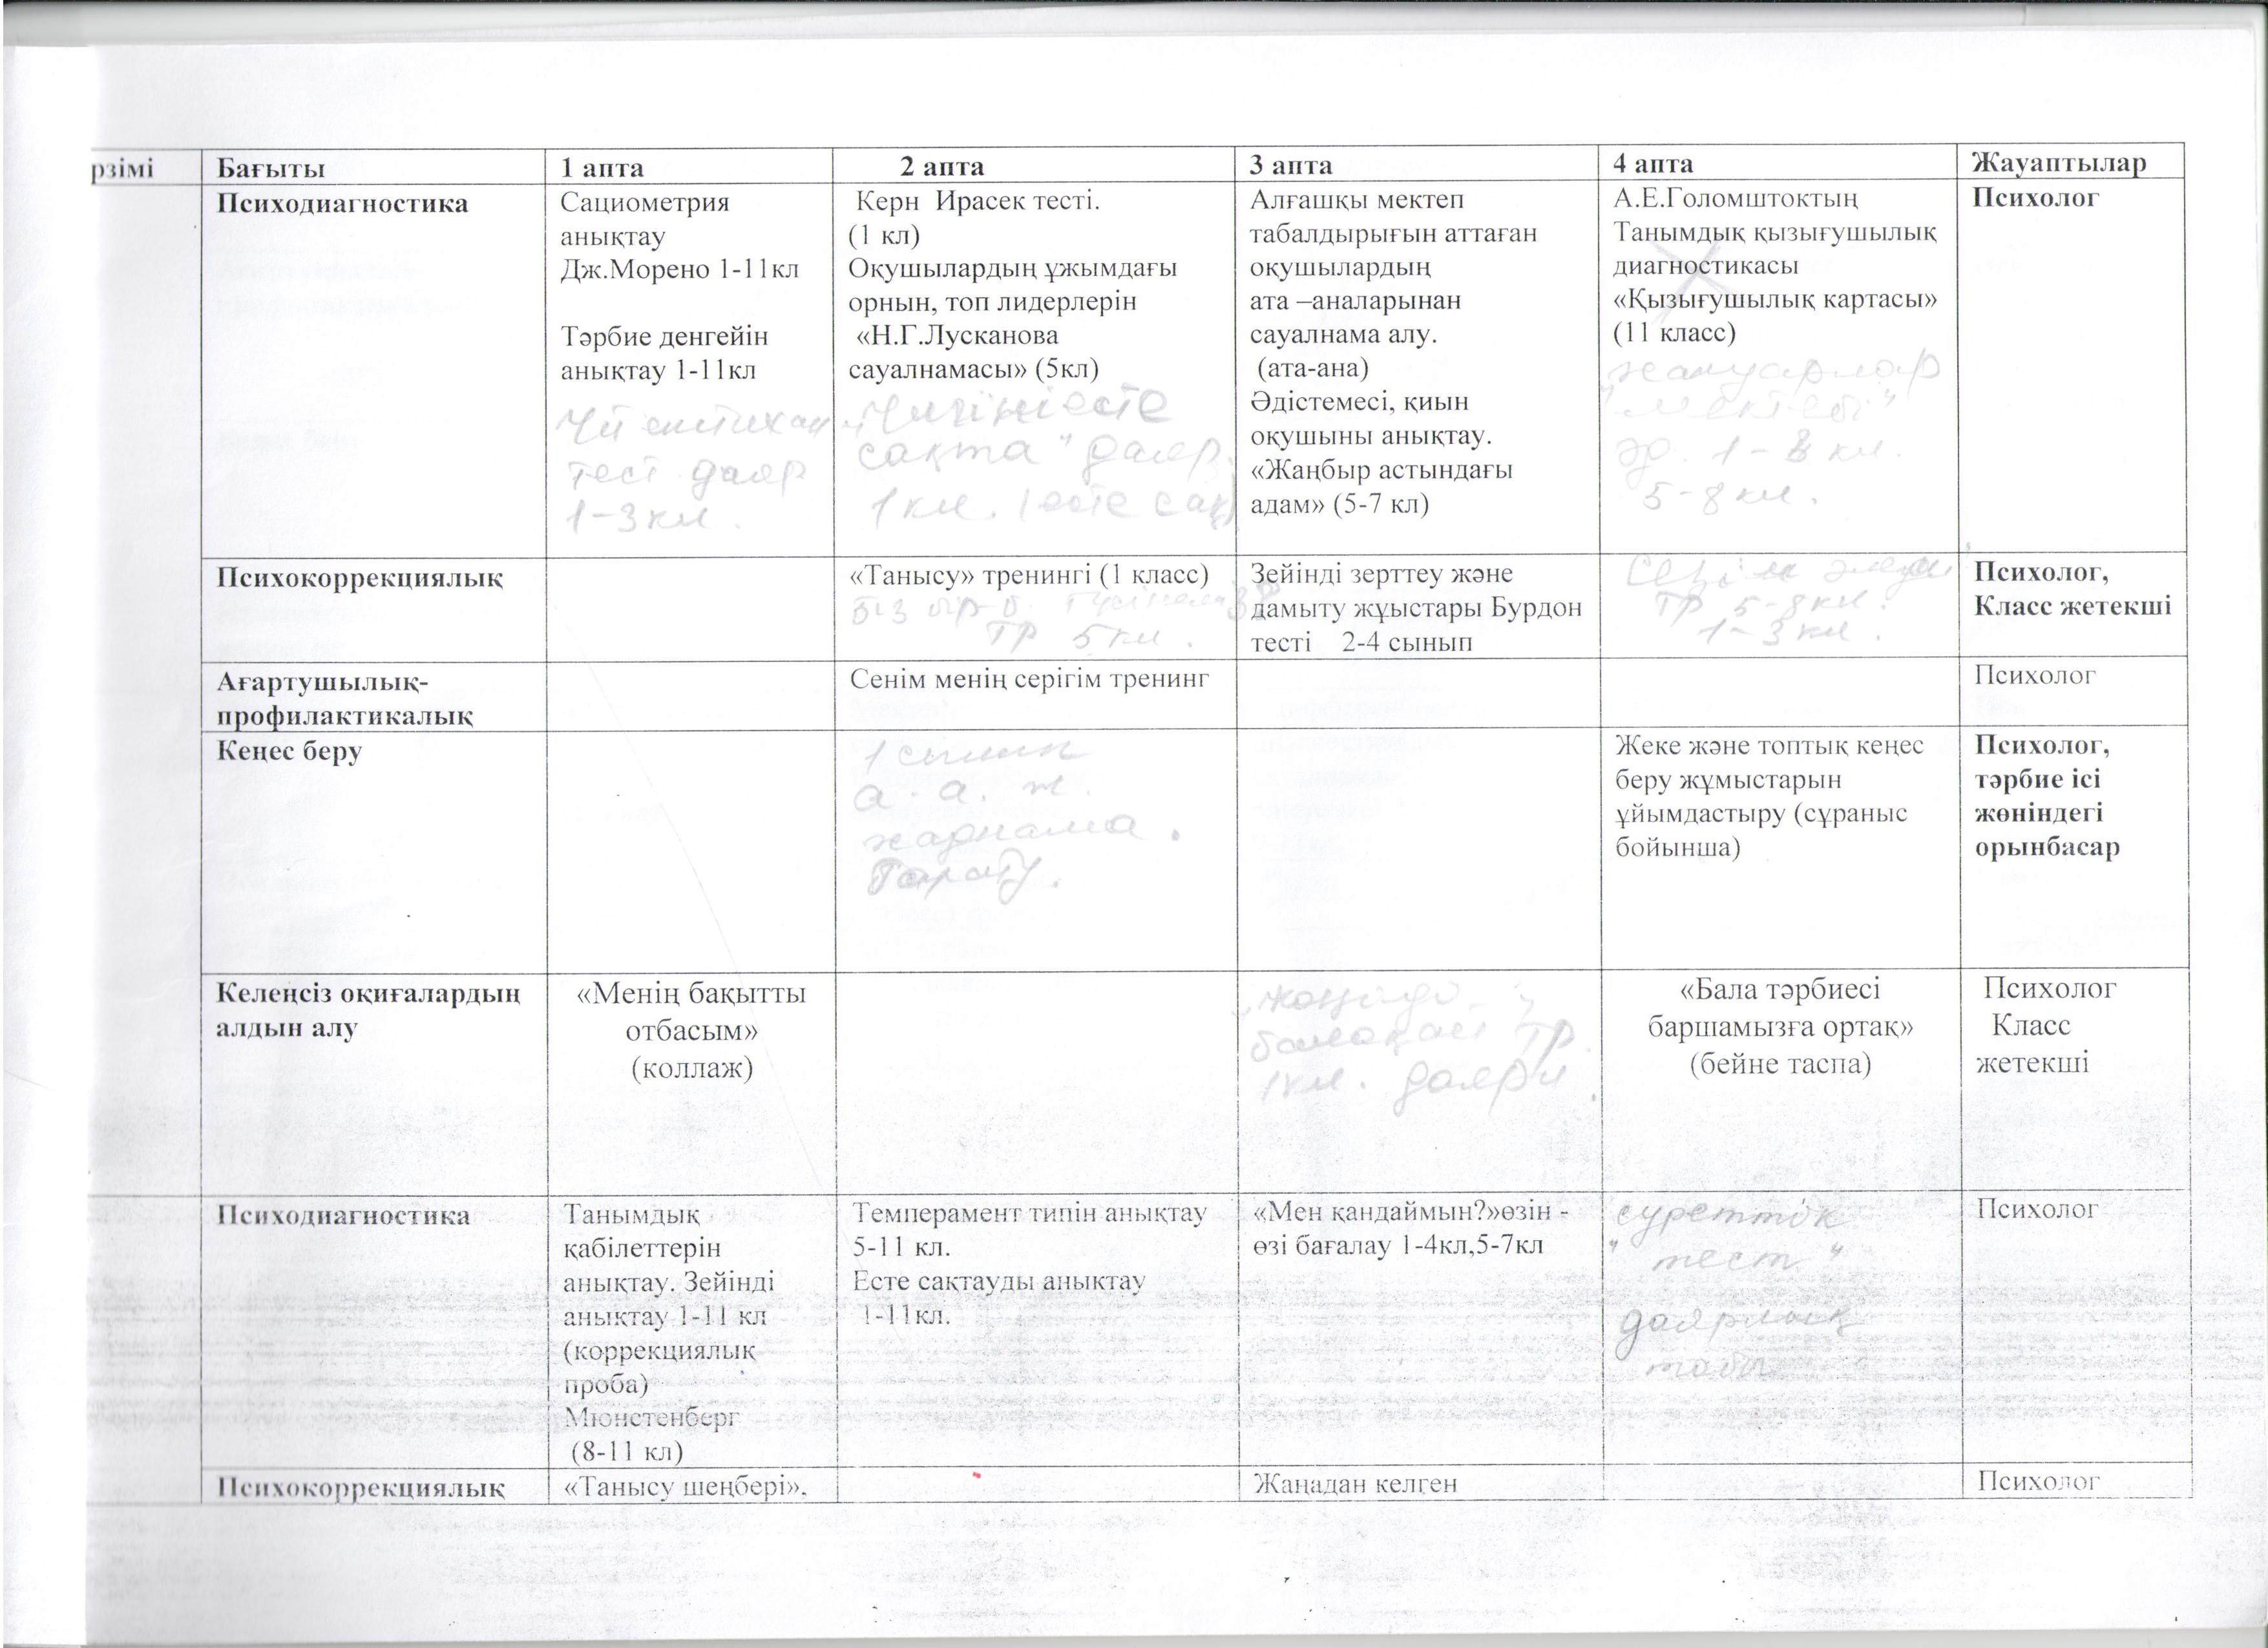 рзімі Бағыты 1 апта 2 апта 3 апта 4 апта Жауаптылар
Психодиагностика
Сациометрия
анықтау
Дж.Морено 1-11кл
Тәрбие денгейін
анықтау 1-11кл
тест даяр
1-3 кл.
Керн Ирасек тесті.
(1 кл)
Оқушылардың ұжымдағы
орнын, топ лидерлерін
«Н.Г.Лусканова
сауалнамасы» (5кл)
сақта" даяр.
1 кл. (есте сақ)
Алғашқы мектеп
табалдырығын аттаған
оқушылардың
ата –аналарынан
сауалнама алу.
(ата-ана)
Әдістемесі, қиын
оқушыны анықтау.
«Жаңбыр астындағы
адам» (5-7 кл)
А.Е.Голомштоктың
Танымдық қызығушылық
диагностикасы
«Қызығушылық картасы»
(11 класс)
жануарлар
"мектебі"
5-8 кл.
Психолог
Психокоррекциялық
«Танысу» тренингі (1 класс)
ТР 5 кл.
Зейінді зерттеу және
дамыту жұыстары Бурдон
тесті 2-4 сынып
Сезім әлемі
ТР 5-8 кл.
1-3 кл.
Психолог,
Класс жетекші
Ағартушылық-
профилактикалық
Сенім менің серігім тренинг
Психолог
Кеңес беру
1 сынып
а. а. ж.
жарнама.
Тарату.
Жеке және топтық кеңес
беру жұмыстарын
ұйымдастыру (сұраныс
бойынша)
Психолог,
тәрбие ісі
жөніндегі
орынбасар
Келеңсіз оқиғалардың
алдын алу
«Менің бақытты
отбасым»
(коллаж)
ТР.
1 кл.
«Бала тәрбиесі
баршамызға ортақ»
(бейне таспа)
Психолог
Класс
жетекші
Психодиагностика
Танымдық
қабілеттерін
анықтау. Зейінді
анықтау 1-11 кл
(коррекциялық
проба)
Мюнстенберг
(8-11 кл)
Темперамент типін анықтау
5-11 кл.
Есте сақтауды анықтау
1-11кл.
«Мен қандаймын?»өзін -
өзі бағалау 1-4кл,5-7кл
суреттік
"тест"
даярлық
Психолог
Психокоррекциялық «Танысу шеңбері». Жаңадан келген Психолог